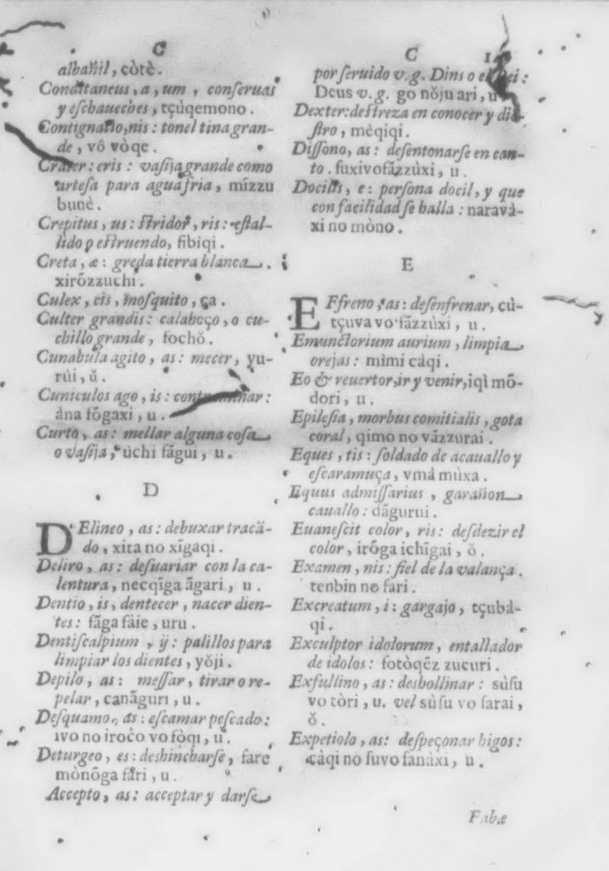 C
albañil, còtè.
Conditaneus, a, um, conseruas
y eschaueches, tçúqemono.
Contignatio, nis: tonel tina gran-
de, vô vòqe.
Crater: eris: vasija grande como
artesa para agua fria, mìzzu
bunè.
Crepitus, us: stridor, ris: estal-
lido o estruendo, fibiqi.
Creta, æ: greda tierra blanca.
xirõzzuchi.
Culex, cis, mosquito, ça.
Culter grandis: calaboço, o cu-
chillo grande, fochǒ.
Cunabula agito, as: mecer, yu-
rúi, ǔ.
Cuniculos ago, is: contraminar:
ána fõgaxi, u.
Curto, as: mellar alguna cosa
o vasija, ùchi fãgui, u.
D
DElineo, as: debuxar tracã-
do, xita no xĩgaqi.
Deliro, as: desuariar con la ca-
lentura, necqĩga ãgari, u.
Dentio, is, dentecer, nacer dien-
tes: fãga fáie, uru.
Dentiscalpium, ij: palillos para
limpiar los dientes, yǒji.
Depilo, as: messar, tirar o re-
pelar, canãguri, u.
Desquamo, as: escamar pescado:
ivo no irocò vo fòqi, u.
Deturgeo, es: deshincharse, fare
mònõga fári, u.
Accepto, as: acceptar y darse
C
por seruido v.g. Dios o el Rei:
Deus v.g. go nǒju ari, u
Dexter: destreza en conocer y die-
stro, mèqiqi.
Dissono, as: desentonarse en can-
to. fuxivofãzzùxi, u.
Docilis, e: persona docil, y que
con facilidad se halla: naravà-
xi no mòno.
E
EFfreno, as: desenfrenar, cù-
tçuva vo fãzzùxi, u.
Emunctorium aurium, limpia
orejas: mìmi càqi.
Eo & reuertor, ir y venir, iqì mõ-
dori, u.
Epilesia, morbus comitialis, gota
coral, qimo no vãzzurai.
Eques, tis: soldado de acauallo y
escaramuça, vmá mùxa.
Equus admissarius, garañon
cauallo: dãgurui.
Euanescit color, ris: desdezir el
color, irõga ichĩgai, ǒ.
Examen, nis: fiel de la valança.
tenbin no fari.
Excreatum, i: gargajo, tçubà-
qi.
Exculptor idolorum, entallador
de idolos: fotòqẽz zucuri.
Exfullino, as: desbollinar: sùsu
vo tòri, u. vel sùsu vo farai,
ǒ.
Expetiolo, as: despeçonar higos:
càqi no fuvo fanàxi, u.
Fabæ